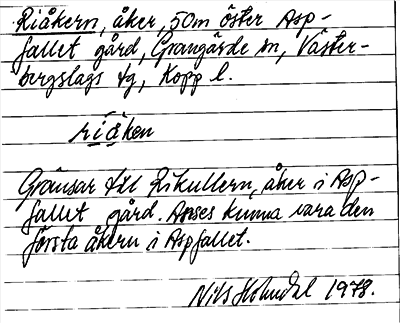 Riåkern, åker, 50m öster Asp-
fallet gård, Grangärde sn, Väster-
bergslags tg, Kopp l.
riåken
Gränsar till Rikullern, åker i Asp-
fallet gård. Anses kunna vara den
första åkern i Aspfallet.
Nils 1978.